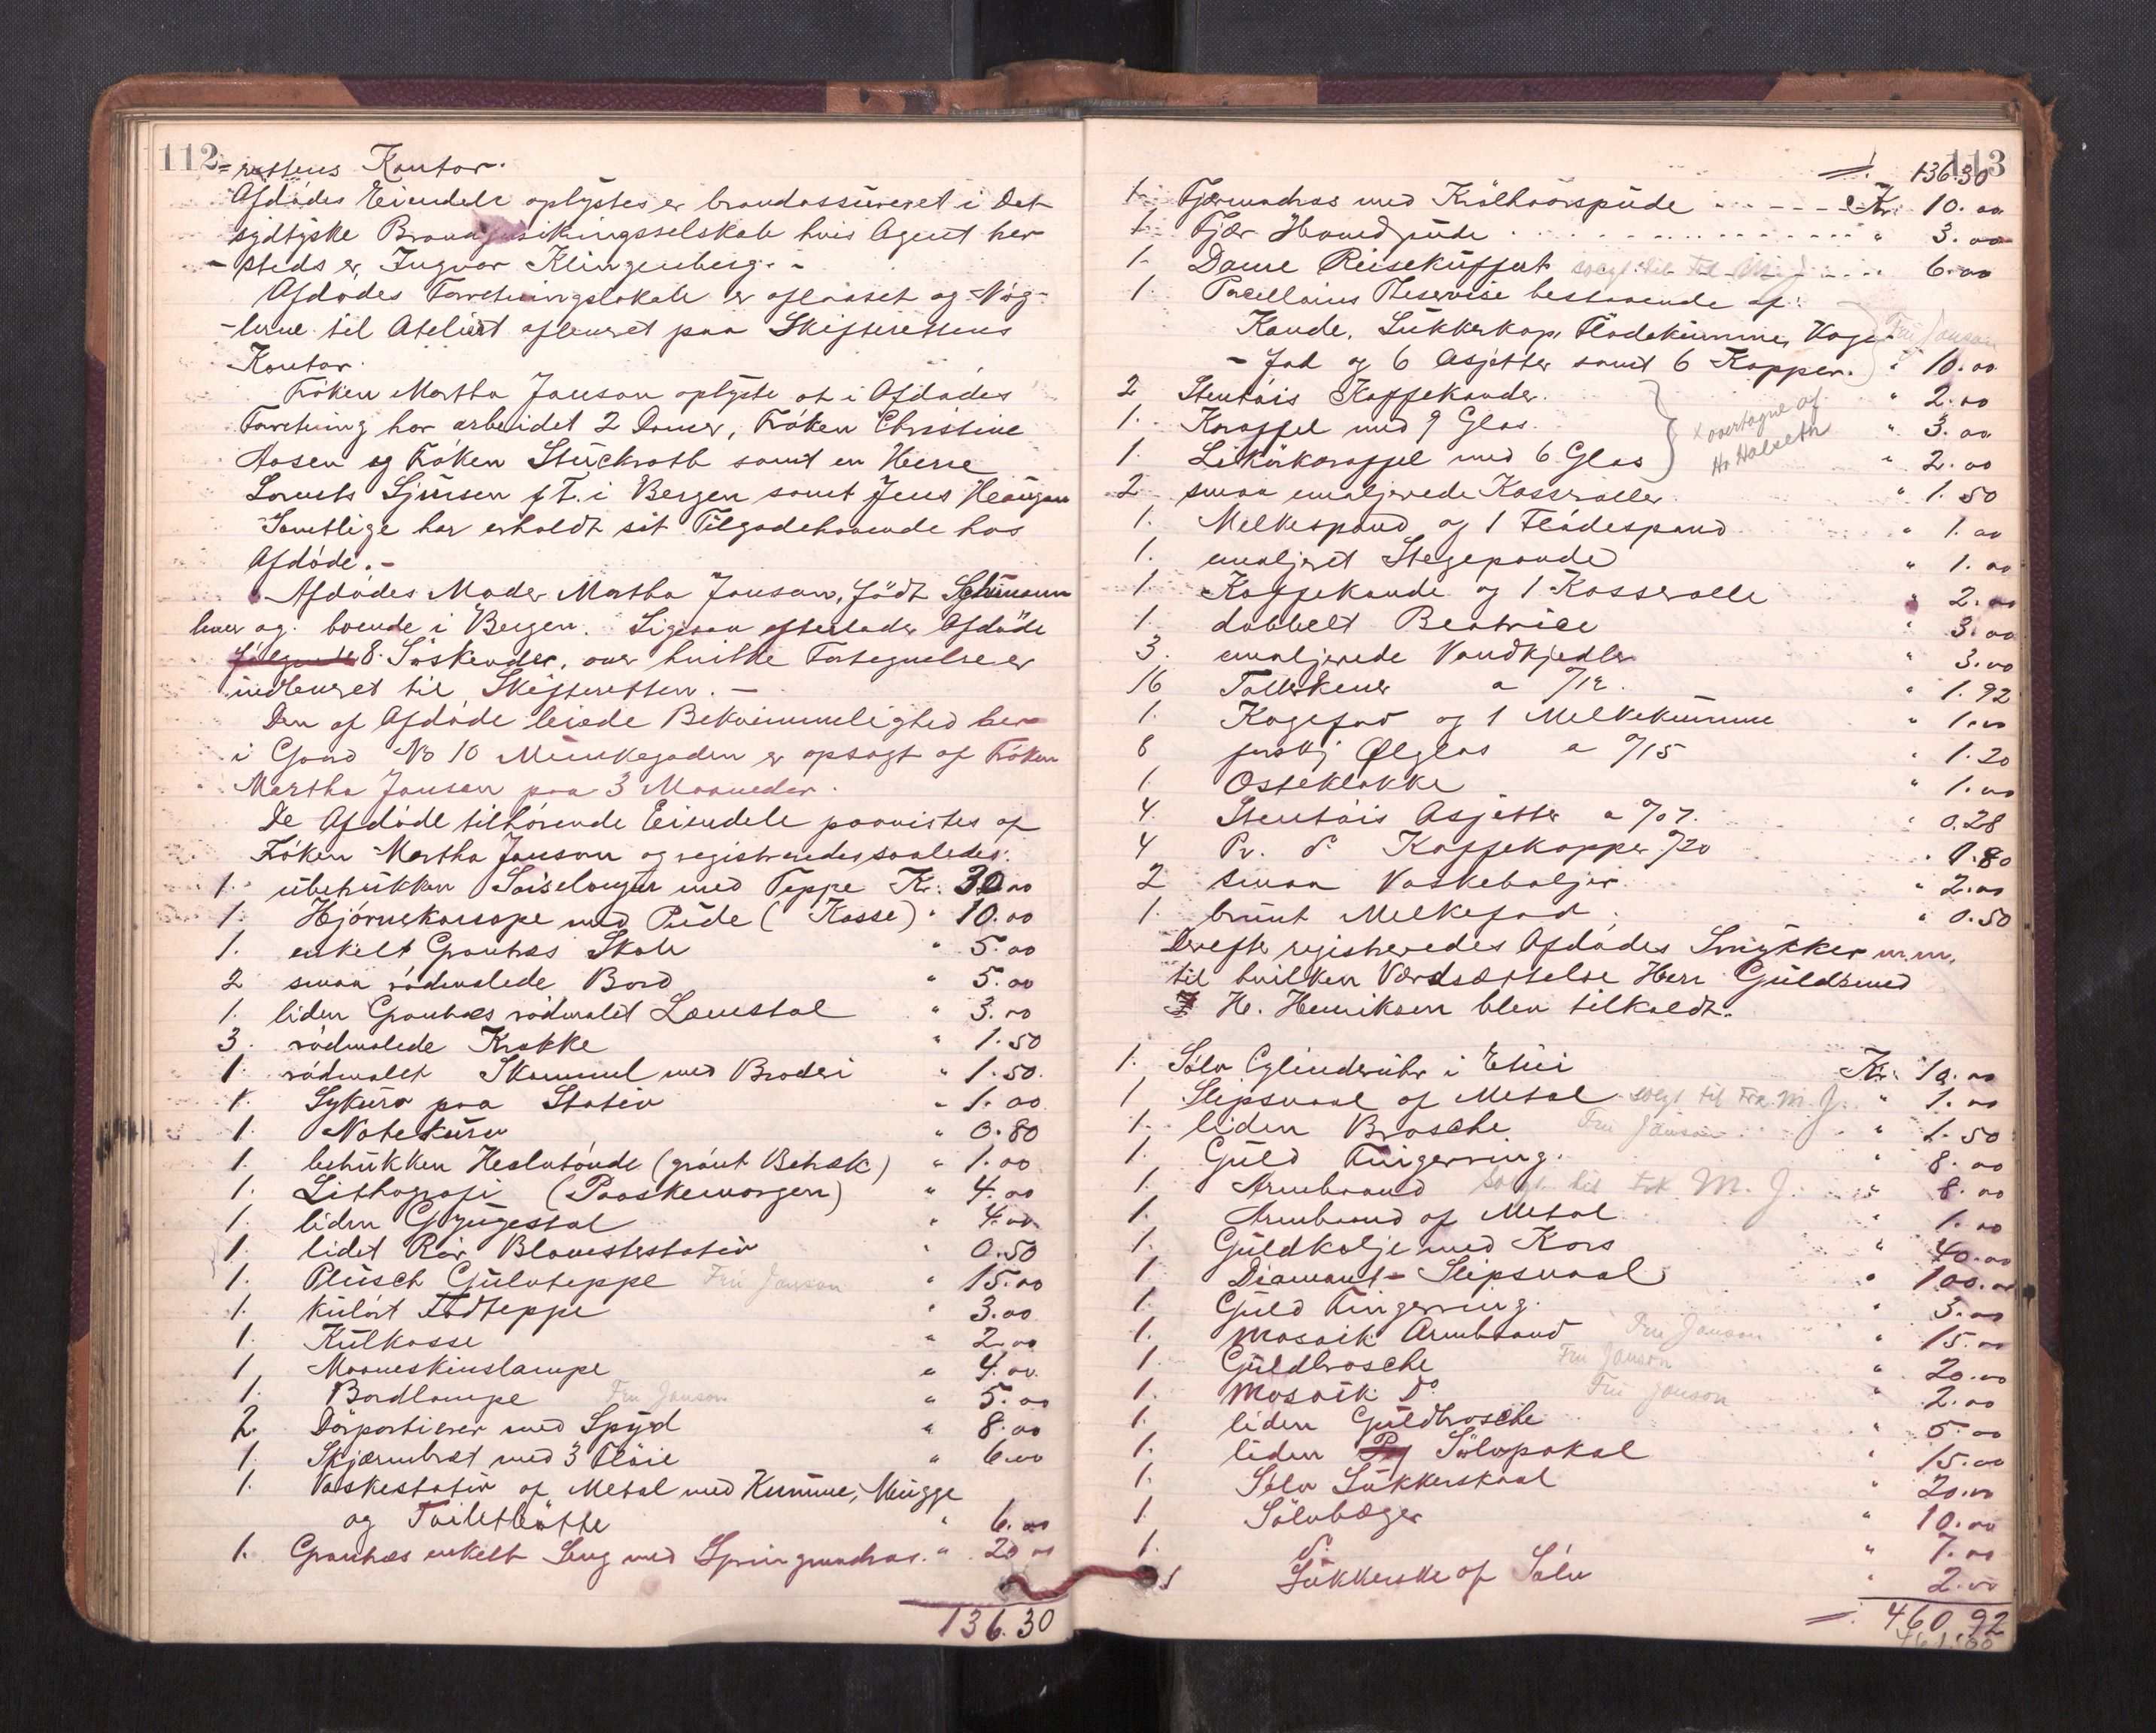 112
-rettens Kontor.
Afdødes Eiendele oplystes er brandassureret i Det
sydtyske Brandforsikringsselskab hvis Agent her-
-steds er, Ingvar Klingenberg. -
Afdødes Forretningslokale er aflaaset og Nøg-
-lerne til Atelieret afleveret paa Skifterettens
Kontor.
Frøken Martha Janson oplyste at i Afdødes
Forretning har arbeidet 2 Damer, Frøken Christine
Aasen og Frøken Stückrath samt en Herre
Sjursen p T. i Bergen samt Jens Haugan
Samtlige har erholdt sit Tilgodehavende hos
Afdøde. -
Afdødes Moder Martha Janson, født Schumann
lever og boende i Bergen. Ligesaa efterlader Afdøde
følgende 8 Søskender, over hvilke Fortegnelse er
indleveret til Skifteretten. -
Den af Afdøde leiede Bekvemmelighed her
i Gaard No 10 Munkegaden er opsagt af Frøken
Martha Janson paa 3 Maaneder.
De Afdøde tilhørende Eiendele paavistes af
Frøken Martha Janson og registreredes saaledes:
1. ubetrukken Saiselongue med Teppe Kr: 30.00
1. Hjørnekanape med Pude (Kasse) " 10.00
1. enkelt Granhæs Skab " 5.00
2 smaa rødmalede Bord " 5.00
1. liden Granhæs rødmalet Lænestol " 3.00
3. rødmalede Krakke " 1.50
1. rødmalet Skammel med Broderi " 1.50
1. Sykurv paa Stativ " 1.00
1. Notekurv " 0.80
1. betrukken Halvtønde (grønt Betræk) " 1.00
1. Lithografi (Paaskemorgen) " 4.00
1. liden Gyngestol " 4.00
1. lidet Rør Blomsterstativ " 0.50
1. Plüsch Gulvteppe Fru Janson " 15.00
1. kulørt Fodteppe " 3.00
1. Kulkasse " 2.00
1. Maaneskinslampe " 4.00
1. Bordlampe Fru Janson " 5.00
2. Dørportierer med Spyd " 8.00
1. Skjærmbræt med 3 Fløie " 6.00
1. Vaskestativ af Metal med Kumme, Mugge
og Toiletbøtte " 6.00
1. Granhæs enkelt Seng med Springmadras. " 20.00
136.30
113
136.30
1. Fjærmadras med Krølhaarspude Kr. 10.00
1. Fjær Hovedpude " 3.00
1. Dame Reisekuffert solgt til Frk M. J. " 6.00
1. Porcellains Theservise bestaaende af:
Kande, Sukkerkop, Flødekumme, Kage- Fru Janson
-fad og 6 Asjetter samt 6 Kopper. " 10.00
2 Stentøis Kaffekander. " 2.00
1. Karaffel med 9 Glas. " 3.00
x overtagne af
Hr. Halseth
1. Likørkaraffel med 6 Glas " 2.00
2 smaa emaljerede Kasseroller. " 1.50
1. Melkespand og 1 Flødespand " 1.00
1. emaljeret Stegepande " 1.00
1. Kaffekande og 1 Kasserolle " 2.00
1. dobbelt Beatrice " 3.00
3. emaljerede Vandkjedler " 3.00
16 Tallerkener a 0/12. " 1.92
1. Kagefad og 1 Melkekumme " 1.00
8 forskj Ølglas a 0/15 " 1.20
1. Osteklokke " 1.00
4. Stentøis Asjetter a 0/07. " 0.28
4 Pr. do Kaffekopper 0/20 " 0.80
2 smaa Vaskebaljer. " 2.00
1. brunt Melkefad. " 0.50
Derefter registreredes Afdødes Smykker m.m.
til hvilken Værdsættelse Herr Guldsmed
H. Henriksen blev tilkaldt.
1. Sølv Cylinderuhr i Etui Kr. 10.00
1 Slipsnaal af Metal solgt til Frk. M. J. " 1.00
1. liden Brosche Fru Janson " 1.50
1. Guld Fingerring. " 8.00
1. Armbaand Solgt til Frk M. J. " 8.00
1. Armbaand af Metal " 1.00
1. Guldkolje med Kors " 40.00
1 Diamant-Slipsnaal " 100.00
1. Guld Fingerring. " 3.00
1. Mosaik Armbaand Fru Janson " 15.00
1. Guldbrosche Fru Janson " 20.00
1. Mosaik Do Fru Janson " 2.00
1. liden Guldbrosche " 5.00
1. liden Sølvpokal " 15.00
1. Sølv Sukkerskaal " 20.00
1. Sølvbæger " 10.00
1. do " 7.00
1 Sukkerske af Sølv " 2.00
460.92